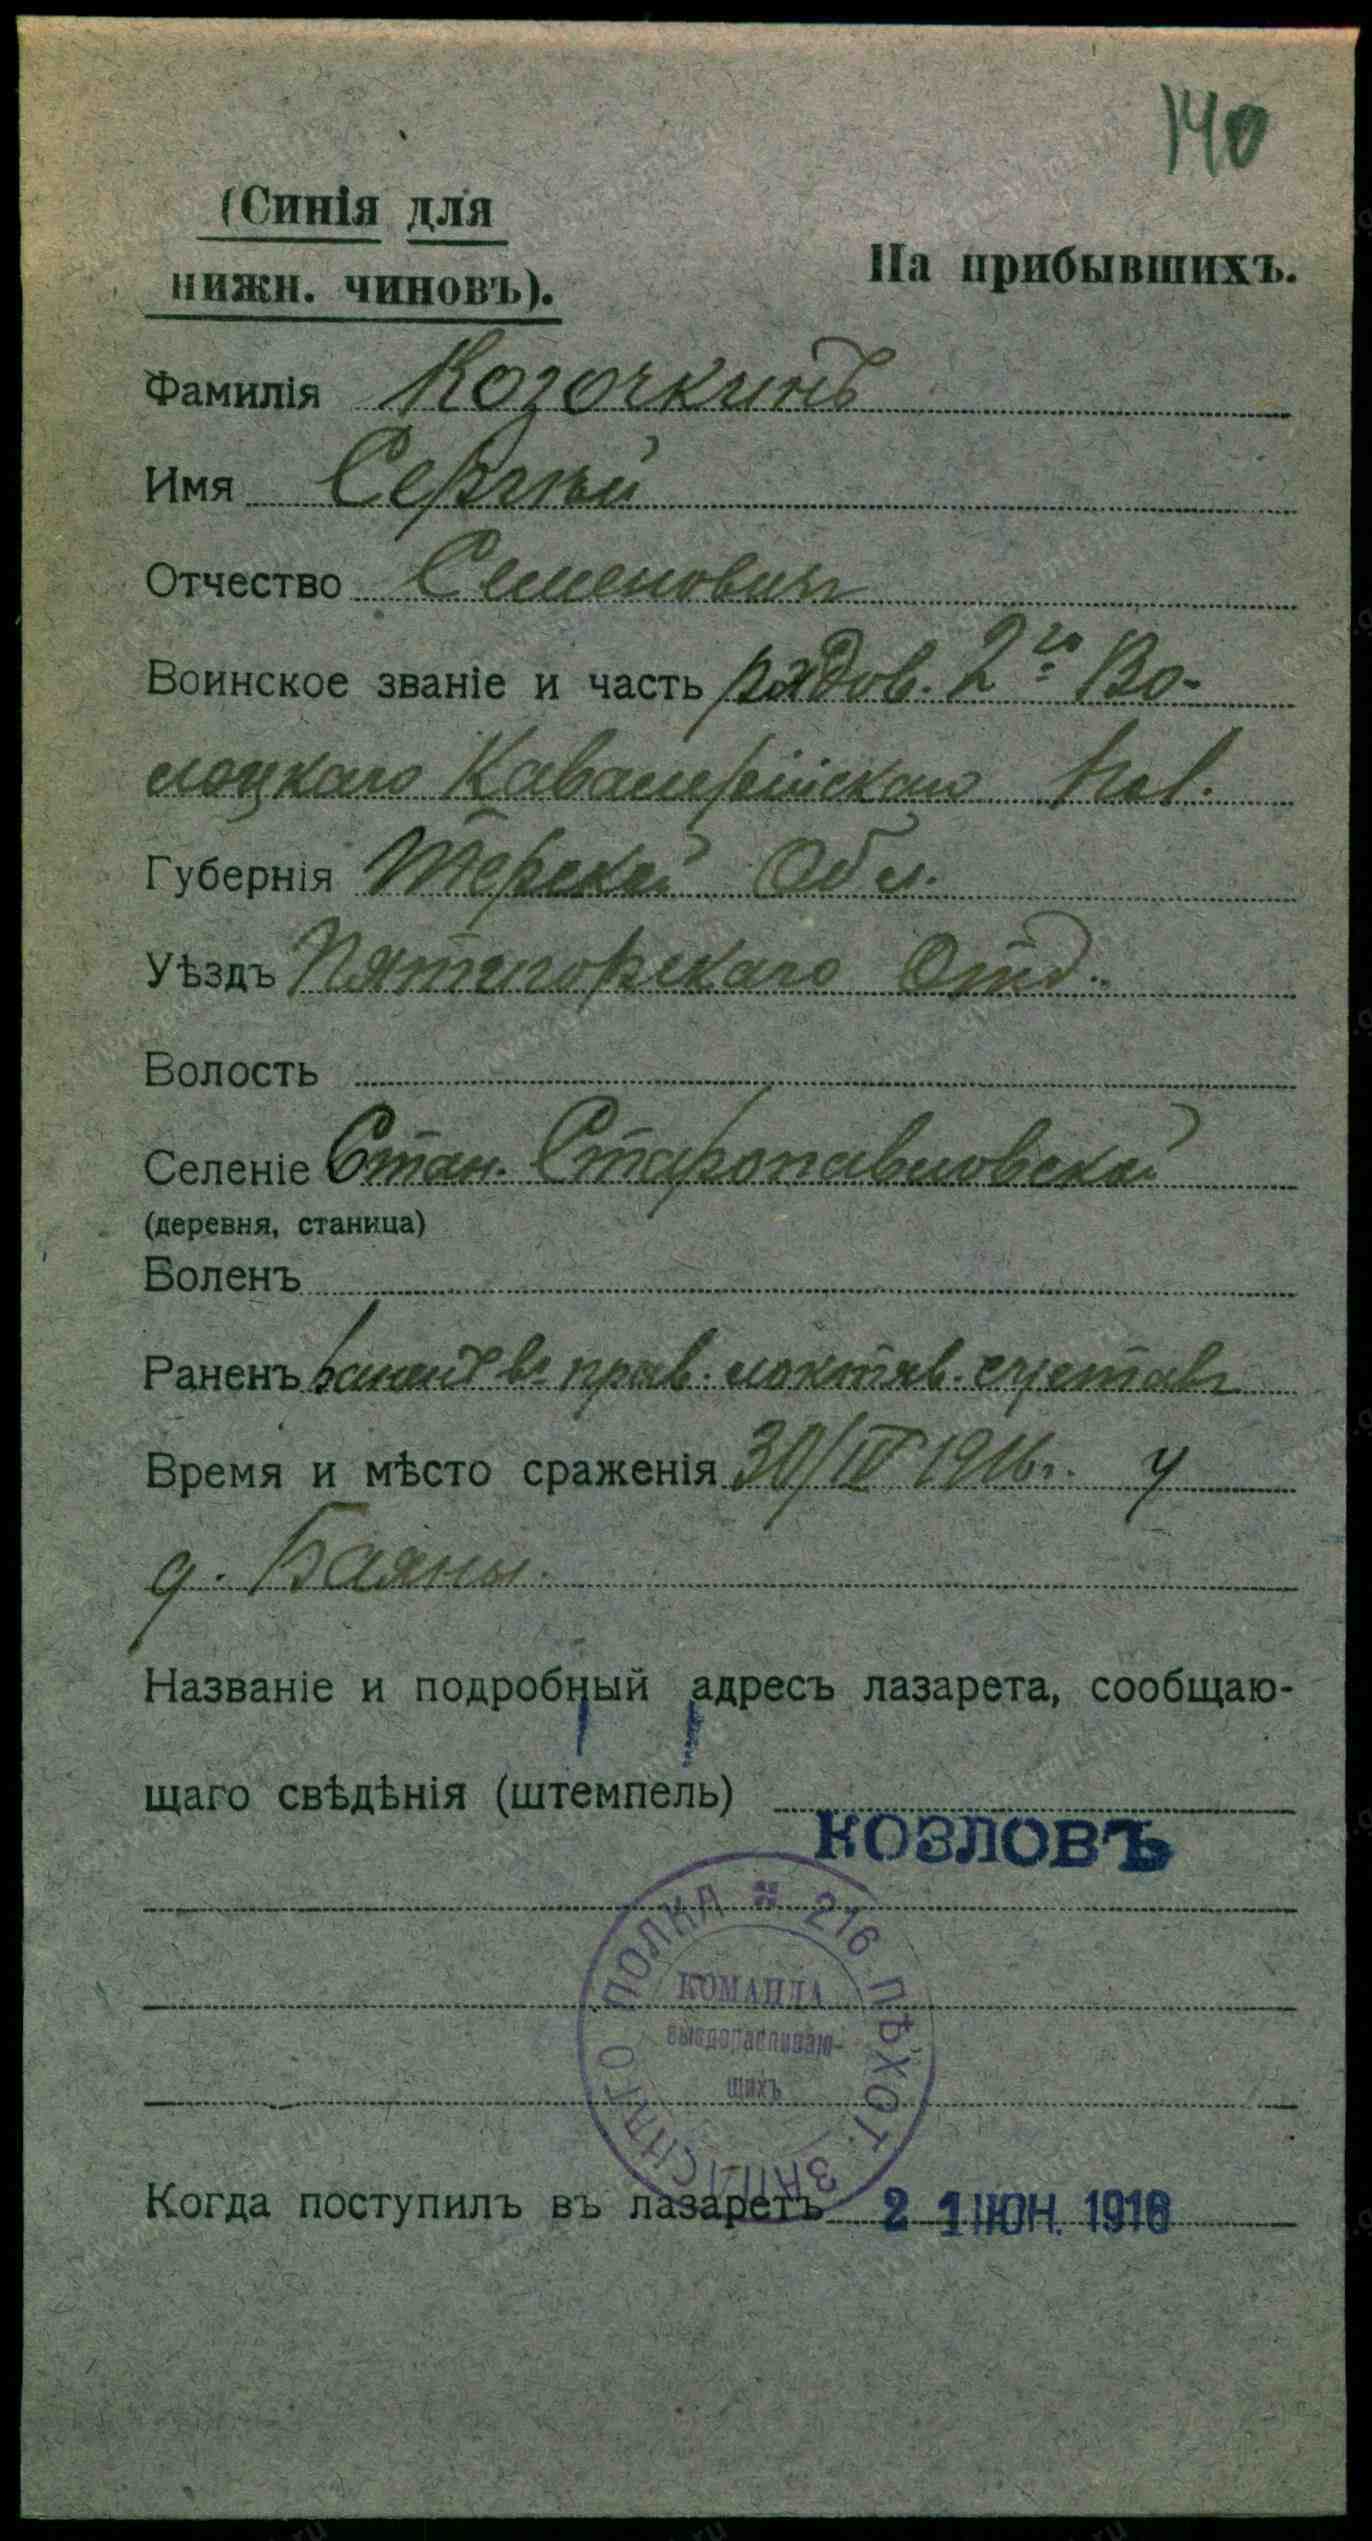 140
(Синія для
нижн. чиновъ).
На прибывшихъ.
Фамилія Козочкинъ
Имя Сергѣй
Отчество Семеновичъ
Воинское званіе и часть рядов. 2го Во-
лоцкаго Кавалерійскаго
Губернія Терской Обл.
Уѣздъ Пятигорскаго Отд.
Волость
Селеніе Стан. Старопавловской
(деревня, станица)
Боленъ
Раненъ въ прав. локтяв. суставъ
Время и мѣсто сраженія 30/IV 1916г. у
д. Баяны.
Названіе и подробный адресъ лазарета, сообщаю-
щаго свѣдѣнія (штемпель)
КОЗЛОВЪ
216 ПѢХОТ. ЗАПАСНОГО ПОЛКА
КОМАНДА
выздоравливаю-
щихъ
Когда поступилъ въ лазаретъ 21 ІЮН. 1916